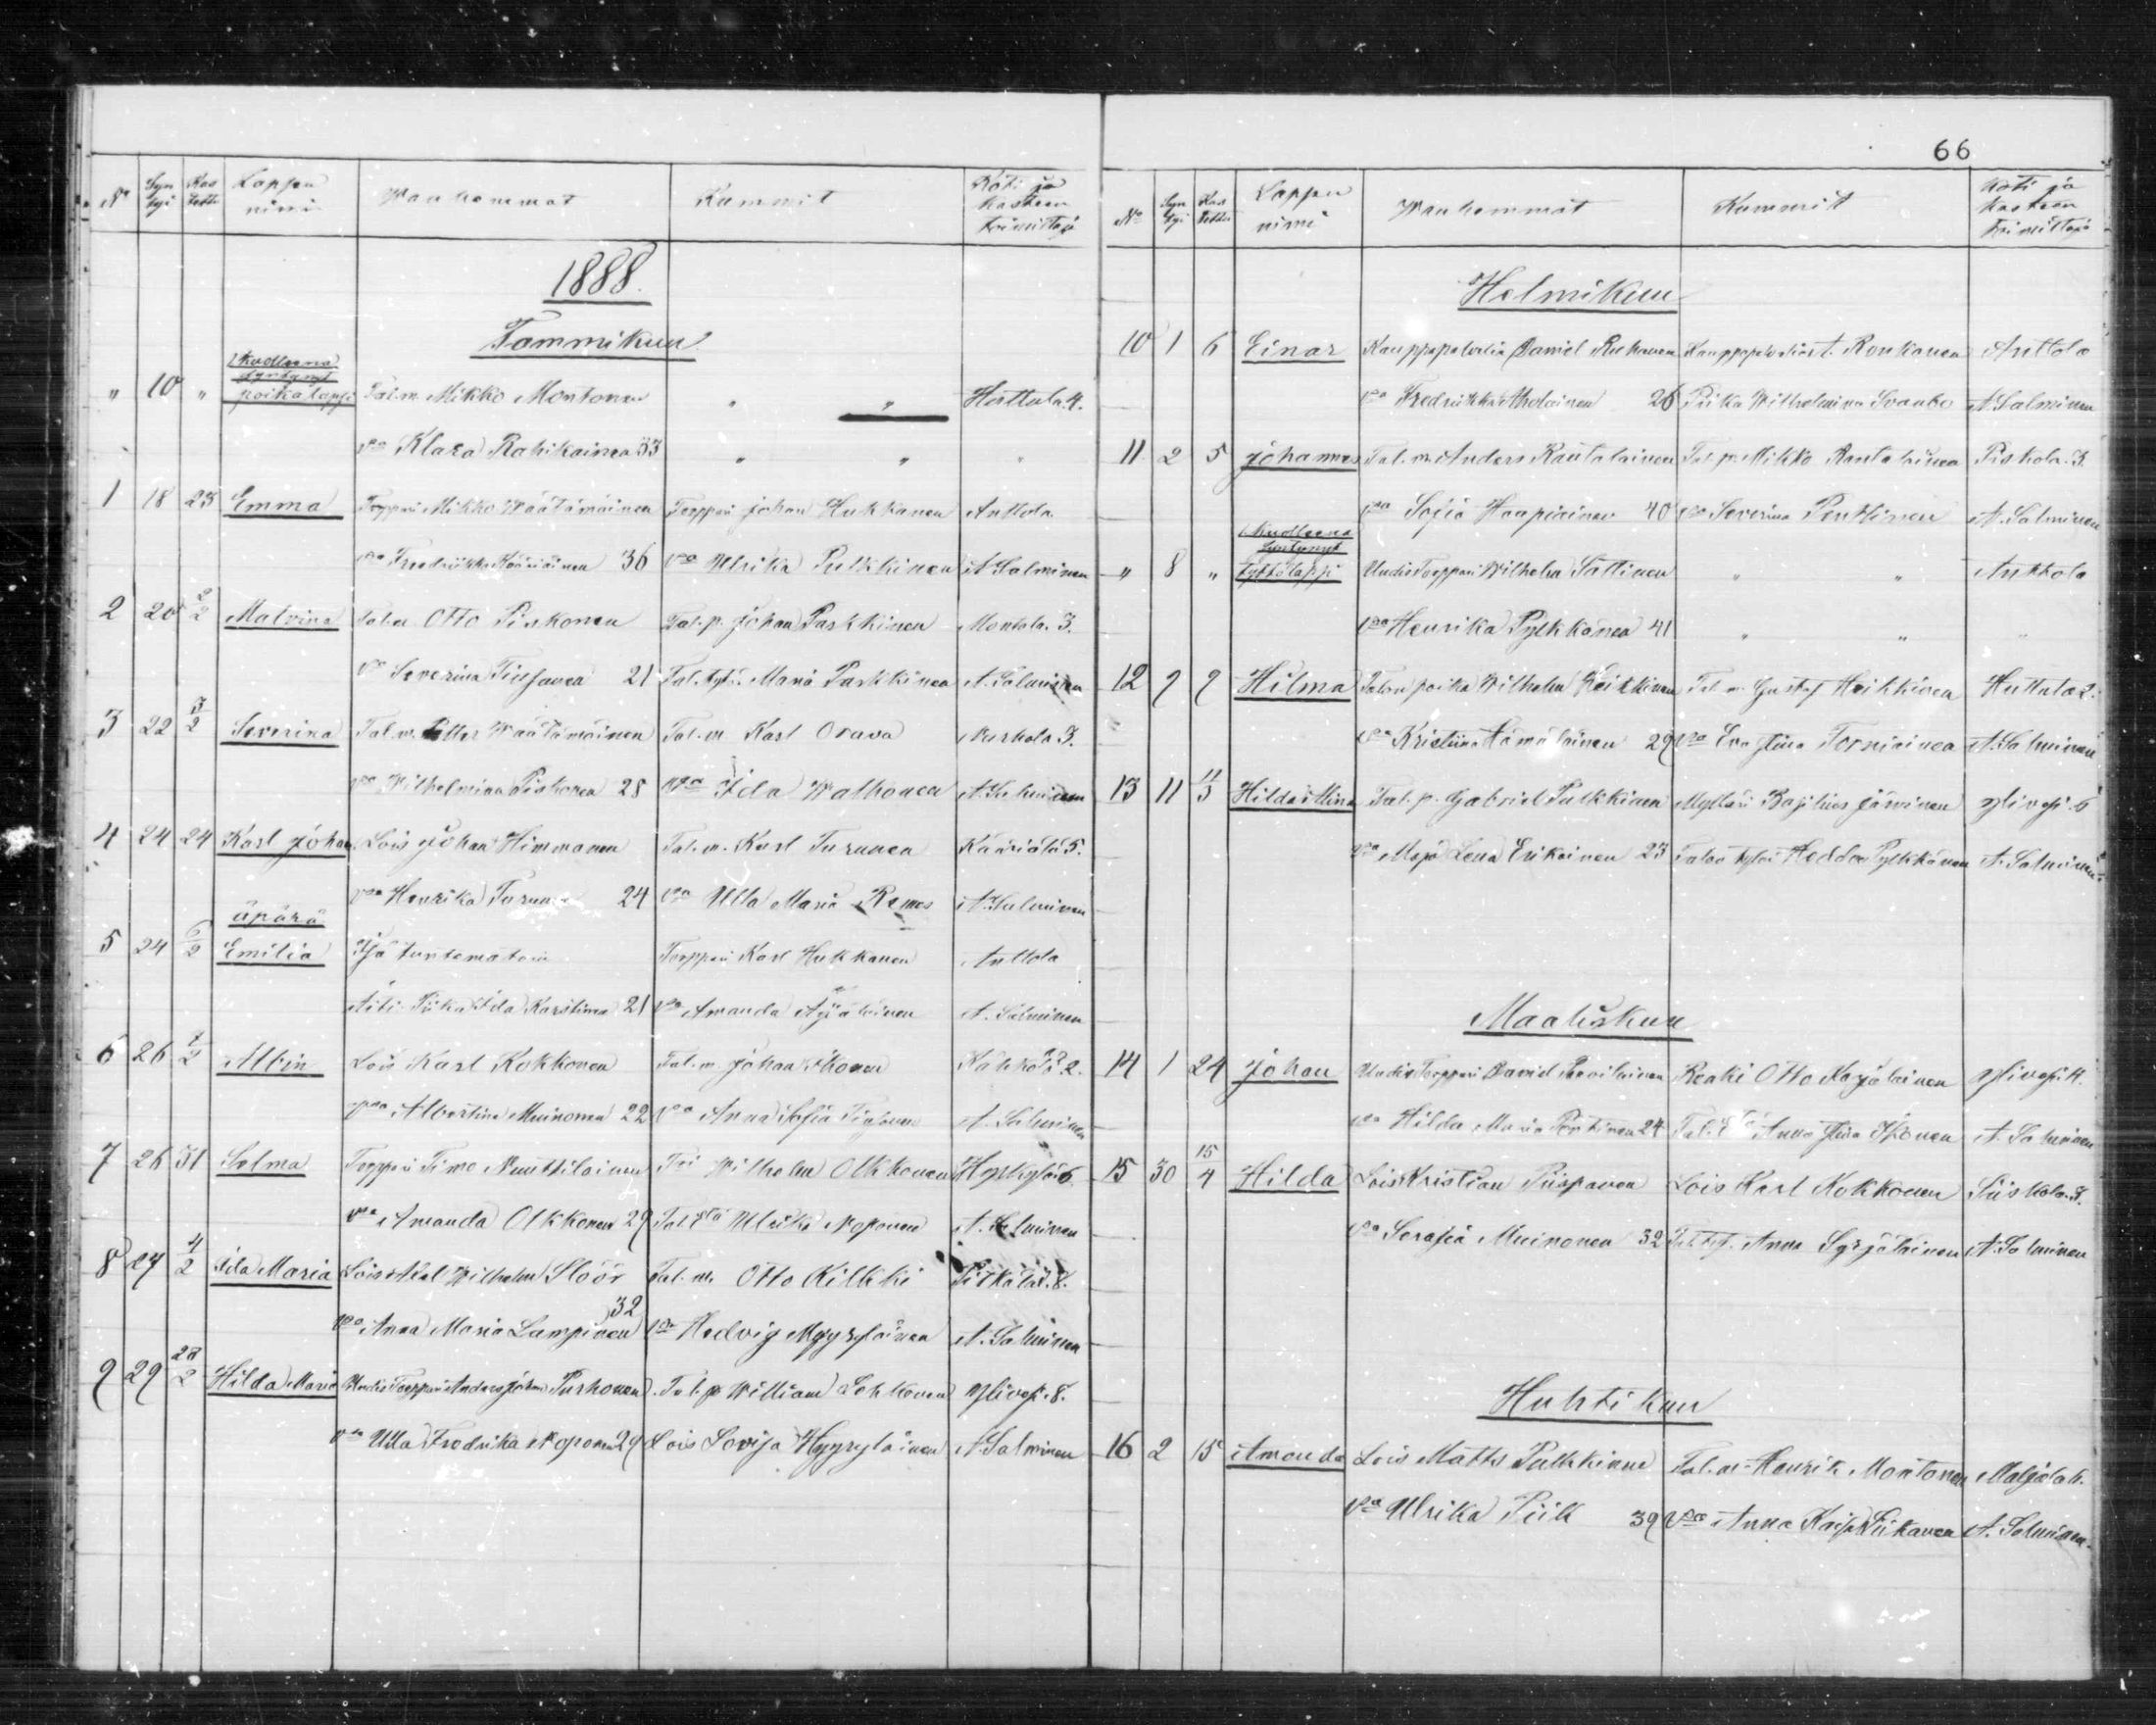 66
No Syntyi Kastettu Lapsen nimi Wanhemmat Kummit Koti ja kasteen toimittaja
1888.
Tammikuu
Kuolleena syntynyt
" 10 " poikalapsi Tal.m. Mikko Montonen " " Huttula 4.
vmo Klara Rahikainen 33 " " "
1 18 23 Emma Torppari Mikko Väätämöinen Torppari Johan Hukkanen Anttola
vmo Fredriikka 36 vmo Ulrika Pulkkinen A. Salminen
2 20 2/2 Malvina Tal.m Otto Piskonen Tal.p. Johan Parkkinen Montola. 3.
vo Severina 21 Tal.tyt. Maria Parkkinen A. Salminen
3 22 3/2 Severina Tal.m. Petter Väätämöinen Tal.m Karl Orava 3.
vmo Wilhelmina Piskonen 28 vmo Ida Walkonen A. Salminen
4 24 24 Karl Johan Lois Johan Himmanen Tal.m. Karl Turunen Kääriälä 5.
vmo Henrika Turunen 24 vmo Ulla Maria Remes A. Salminen
äpärä
5 24 6/2 Emilia Isä tuntematoin Torppari Karl Hukkanen Anttola
Äiti Piika Ida 21 vmo Amanda A. Salminen
6 26 2/2 Albin Lois Karl Kokkonen Tal.m. Johan Ikonen 2.
vmo Albertina Muinonen 22 vmo Anna Sofia A. Salminen
7 26 31 Selma Torppari Timo Nuuttilainen Wilhelm Olkkonen 6.
vmo Amanda Olkkonen 29 Ulrika Noponen A. Salminen
8 27 4/2 Ida Maria Lois Axel Wilhelm Slöör Tal.m. Otto Kilkki Pitkälä. 8.
32
vmo Anna Maria Lampinen vmo Hedvig A. Salminen
9 29 28/2 Hilda Maria Uudis Torppari Anders Johan Purhonen Tal.p. William Lehkonen Ylivesi. 8.
vmo Ulla Fredrika Noponen 29 Lois Lovisa Hyyryläinen A. Salminen
No Syntyi Kastettu Lapsen nimi Wanhemmat Kummit Koti ja kasteen toimittaja
Helmikuu
10 1 6 Einar Kauppapalvelia Daniel Kauppapalvelia A. Ronkanen Anttola
vmo Fredriikka 26 Piika Wilhelmina Svanbo A. Salminen
11 2 5 Johannes Tal.m. Anders Rautalainen Tal.p. Mikko Rautalainen Piskola. 3.
vmo Sofia Haapiainen 40 vmo Severina Penttinen A. Salminen
Kuolleena syntynyt
" 8 " tyttölapsi Uudis Torppari Wilhelm Sattinen " " Anttola
vmo Henrika Pylkkänen 41 " " "
12 9 9 Hilma Talon poika Wilhelm Heikkinen Tal.m. Gustaf Heikkinen Huttula 2.
vmo Kristiina Hämäläinen 29 vmo Eva Stina Torniainen A. Salminen
13 11 11/3 Hilda Alina Tal.p. Gabriel Pulkkinen Mylläri Basilius Järvinen Ylivesi. 6
vmo Maja Lena Erikainen 23 Talon tytär Hedda Pylkkänen A. Salminen
Maaliskuu
14 1 24 Johan Uudis Torppari David Paavilainen Renki Otto Karjalainen Ylivesi. 4.
vmo Hilda Maria Pentinen 24 Anna Stina Ikonen A. Salminen
15 30 15/4 Hilda Lois Kristian Piispanen Lois Karl Kokkonen Siiskola. 3.
vmo Serafia Muinonen 32 Tal.tyt. Anna Syrjäläinen A. Salminen
Huhtikuu
16 2 15 Amanda Lois Matts Pulkkinen Tal.m. Henrik Montonen
vmo Ulrika Piik 39 vmo Anna Kaisa A. Salminen.